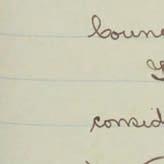 boun
consid